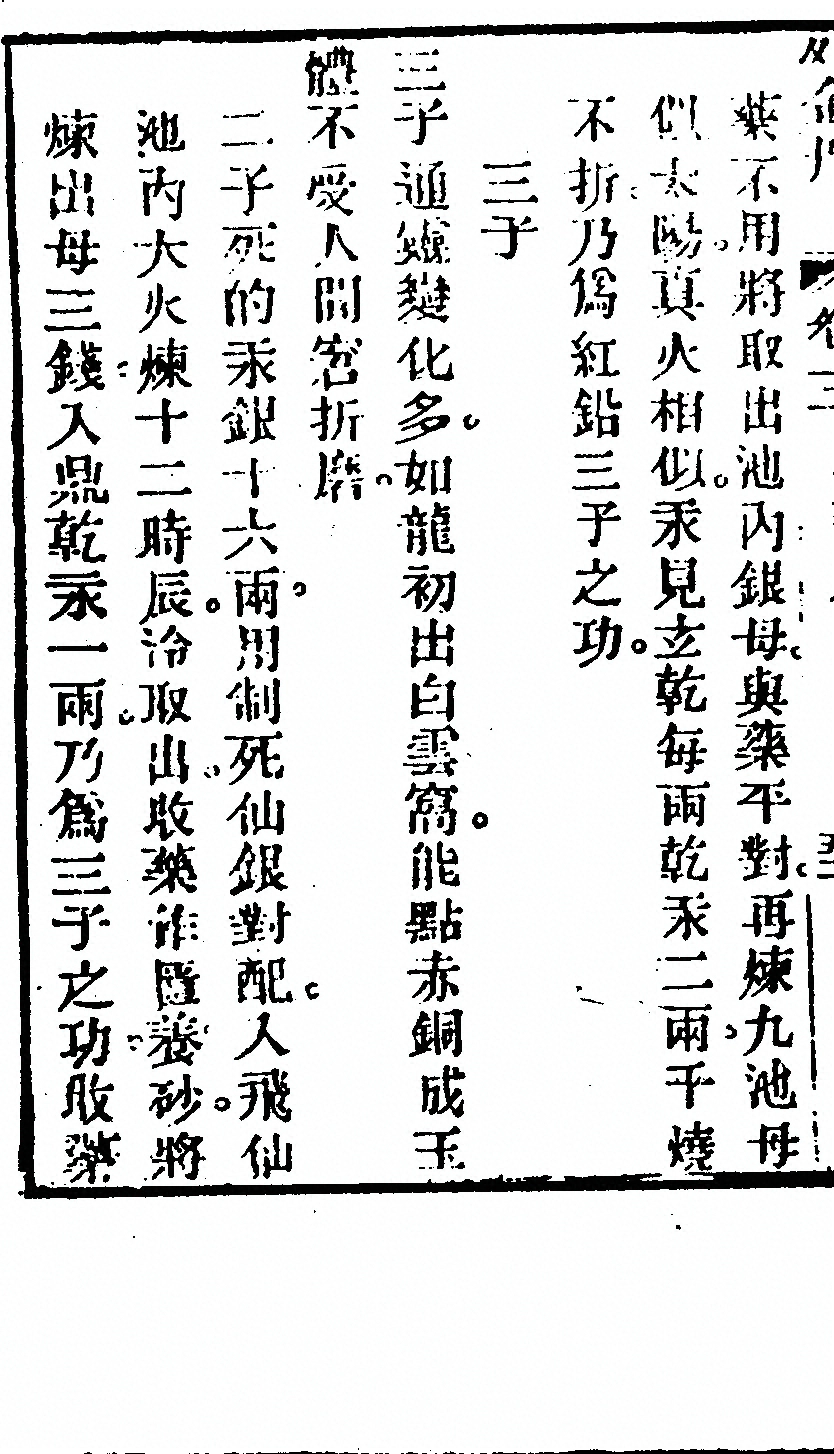 藥不用將取出池内銀母。與藥平對。再煉九池母
似太陽。真火相似。汞見立乾每兩乾汞二兩。千燒
不折。乃爲紅鉛三子之功。
三子
三子通靈變化多。如龍初出白雲窩。能點赤銅成玉
體不受人間窑折磨。
二子死的汞銀十六兩。用制死仙銀對配。入飛仙
池内大火煉十二時辰。冷取出。收藥作匱。養砂。將
煉出母三錢。入鼎乾汞一兩。乃爲三子之功。收藥